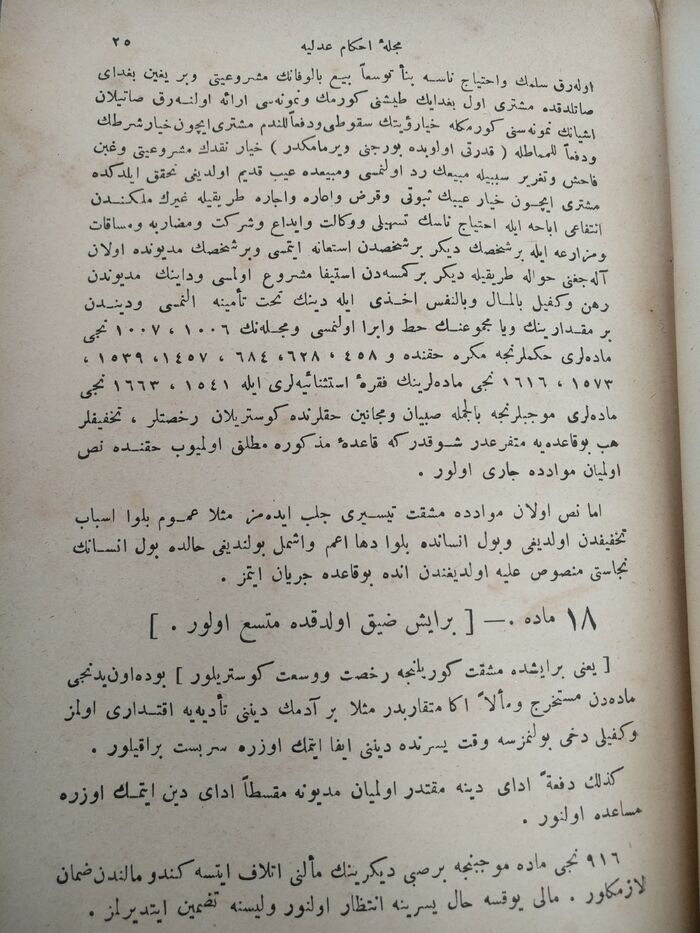 مجلهٔ احكام عدليه
٢٥
اوله‌رق سلمك واحتياج ناسه بنأ توسعاً بيع بالوفانك مشروعيتى وبر يغين بغداى
صاتلدقده مشترى اول بغدايك طيشنى كورمك ونمونه‌سى ارائه اولنه‌رق صاتيلان
اشيانك نمونه‌سنى كورمكله خيار رؤيتك سقوطى ودفعاً للندم مشترى ايچون خيار شرطك
ودفعاً للمماطله ( قدرتى اوليده بورجنى ويرمامكدر ) خيار نقدك مشروعيتى وغبن
فاحش وتغرير سببيله مبيعك رد اولنمسى ومبيعده عيب قديم اولديغى تحقق ايلدكده
مشترى ايچون خيار عيبك ثبوتى وقرض واعاره واجاره طريقيله غيرك ملكندن
انتفاعى اباحه ايله احتياج ناسك تسهيلى ووكالت وايداع وشركت ومضاربه ومساقات
ومزارعه ايله برشخصك ديكر برشخصدن استعانه ايتمسى وبرشخصك مديونده اولان
آله‌جغنى حواله طريقيله ديكر بركمسه‌دن استيفا مشروع اولمسى وداينك مديوندن
رهن وكفيل بالمال وبالنفس اخذى ايله دينك تحت تأمينه النمسى وديندن
بر مقدارينك ويا مجموعنك حط وابرا اولنمسى ومجله‌نك ١٠٠٦ ، ١٠٠٧ نجى
ماده‌لرى حكملرنجه مكره حقنده و ٤٥٨ ، ٦٢٨، ٦٨٤ ، ١٤٥٧، ١٥٣٩ ،
١٥٧٣ ، ١٦١٦ نجى ماده‌لرينك فقرهٔ استثنائيه‌لرى ايله ١٥٤١ ، ١٦٦٣ نجى
ماده‌لرى موجبلرنجه بالجمله صبيان ومجانين حقلرنده كوستريلان رخصتلر ، تخفيفلر
هب بوقاعده‌يه متفرعدر شوقدركه قاعدهٔ مذكوره مطلق اولميوب حقنده نص
اولميان موادده جارى اولور .
اما نص اولان موادده مشقت تيسيرى جلب ايده‌مز مثلا عموم بلوا اسباب
تخفيفدن اولديغى وبول انسانده بلوا دها اعم واشمل بولنديغى حالده بول انسانك
نجاستى منصوص عليه اولديغندن انده بوقاعده جريان ايتمز .
١٨ ماده .— [ برايش ضيق اولدقده متسع اولور . ]
[ يعنى برايشده مشقت كوريلنجه رخصت ووسعت كوستريلور ] بوده اون يدنجى
ماده‌دن مستخرج ومآلاً اكا متقاربدر مثلا بر آدمك ديننى تأديه‌يه اقتدارى اولمز
وكفيلى دخى بولنمزسه وقت يسرنده ديننى ايفا ايتمك اوزره سربست براقيلور .
كذلك دفعةً اداى دينه مقتدر اولميان مديونه مقسطاً اداى دين ايتمك اوزره
مساعده اولنور .
٩١٦ نجى ماده موجبنجه برصبى ديكرينك مالنى اتلاف ايتسه كندو مالندن ضمان
لازمكلور . مالى يوقسه حال يسرينه انتظار اولنور وليسنه تضمين ايتديرلمز .